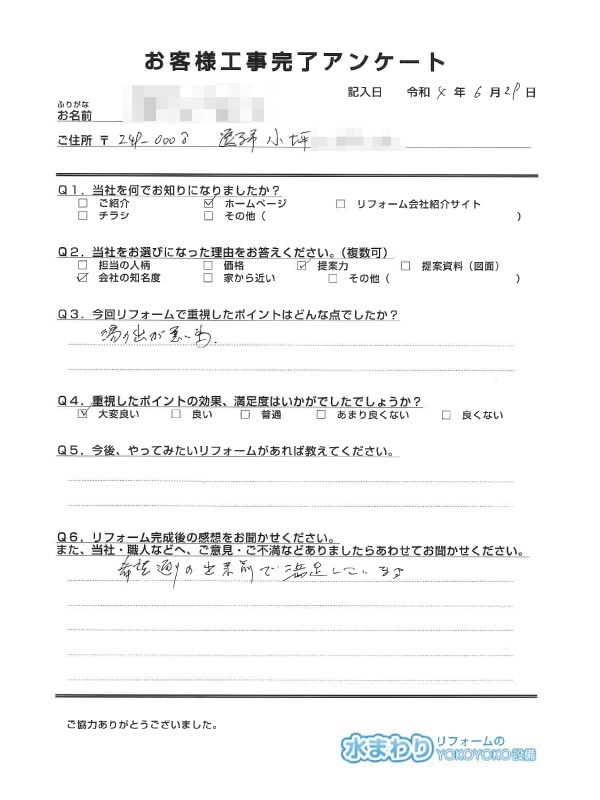 お客様工事完了アンケート
記入日 令和 4 年 6 月 29 日
ふりがな
お名前
ご住所 〒 249-0008 逗子市 小坪
Q1．当社を何でお知りになりましたか？
□ ご紹介 ☑ ホームページ □ リフォーム会社紹介サイト
□ チラシ □ その他（ ）
Q2．当社をお選びになった理由をお答えください。（複数可）
□ 担当の人柄 □ 価格 ☑ 提案力 □ 提案資料（図面）
☑ 会社の知名度 □ 家から近い □ その他（ ）
Q3．今回リフォームで重視したポイントはどんな点でしたか？
湯の出が悪い為.
Q4．重視したポイントの効果、満足度はいかがでしたでしょうか？
☑ 大変良い □ 良い □ 普通 □ あまり良くない □ 良くない
Q5．今後、やってみたいリフォームがあれば教えてください。
Q6．リフォーム完成後の感想をお聞かせください。
また、当社・職人などへ、ご意見・ご不満などありましたらあわせてお聞かせください。
希望通りの出来前で満足しています
ご協力ありがとうございました。
水まわりリフォームのYOKOYOKO設備